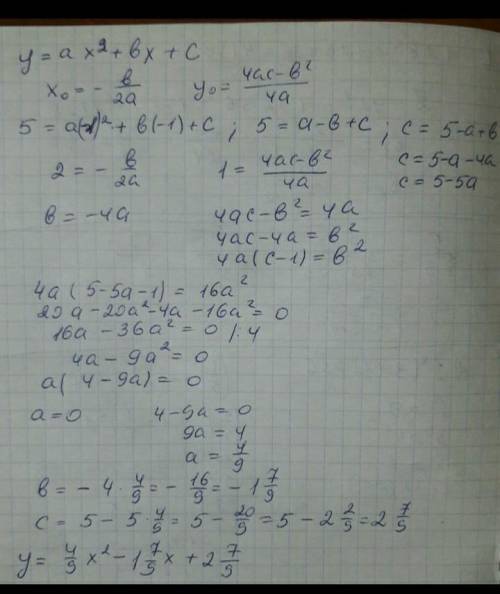 y = a x² + bx + c
x₀ = - b/2a    y₀ = (4ac-b²)/4a
5 = a(-1)² + b(-1) + c ; 5 = a-b+c ; c = 5-a+b
2 = - b/2a    1 = (4ac-b²)/4a    c = 5-a-4a
c = 5-5a
b = -4a    4ac-b² = 4a
4ac-4a = b²
4a(c-1) = b²
4a(5-5a-1) = 16a²
20a-20a²-4a-16a² = 0
16a-36a² = 0 /:4
4a-9a² = 0
a(4-9a) = 0
a = 0    4-9a = 0
9a = 4
a = 4/9
b = -4·4/9 = -16/9 = -1 7/9
c = 5-5·4/9 = 5-20/9 = 5-2 2/9 = 2 7/9
y = 4/9 x² - 1 7/9 x + 2 7/9